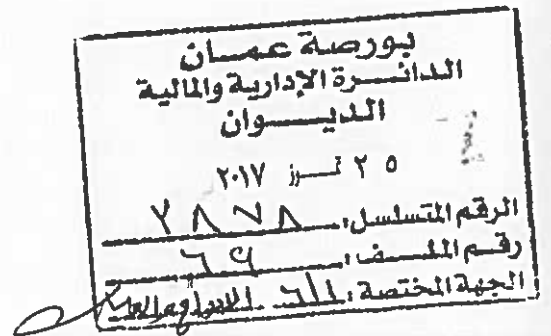 بورصة عمان
الدائرة الإدارية والمالية
الديوان
٢٥ تموز ٢٠١٧
الرقم المتسلسل: ٢٨٧٨
رقم الملف: ٦٩
الجهة المختصة: